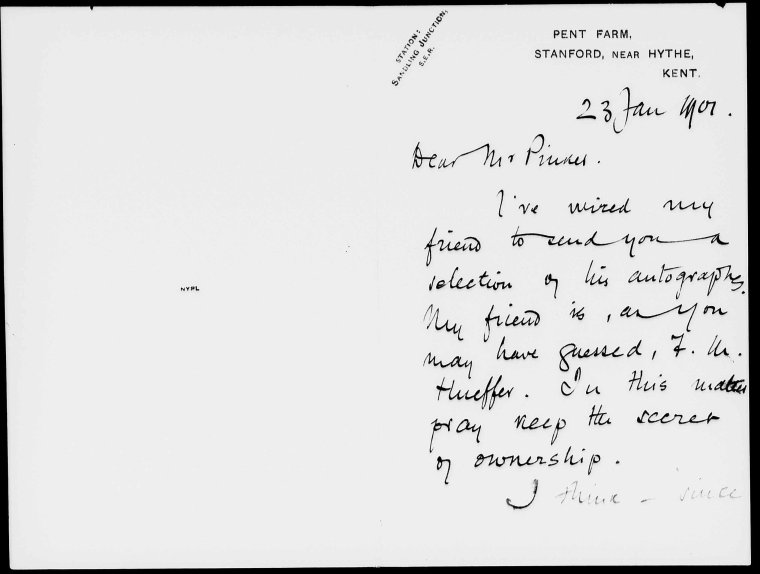 STATION:
SANDLING JUNCTION,
S.E.R.
PENT FARM,
STANFORD, NEAR HYTHE,
KENT.
23 Jan 1901.
Dear Mr Pinker.
I've wired my
friend to send you a
selection of his autographs.
My friend is, as you
may have guessed, F. M.
Hueffer. In this matter
pray keep the secret
of ownership.
I think – since
NYPL